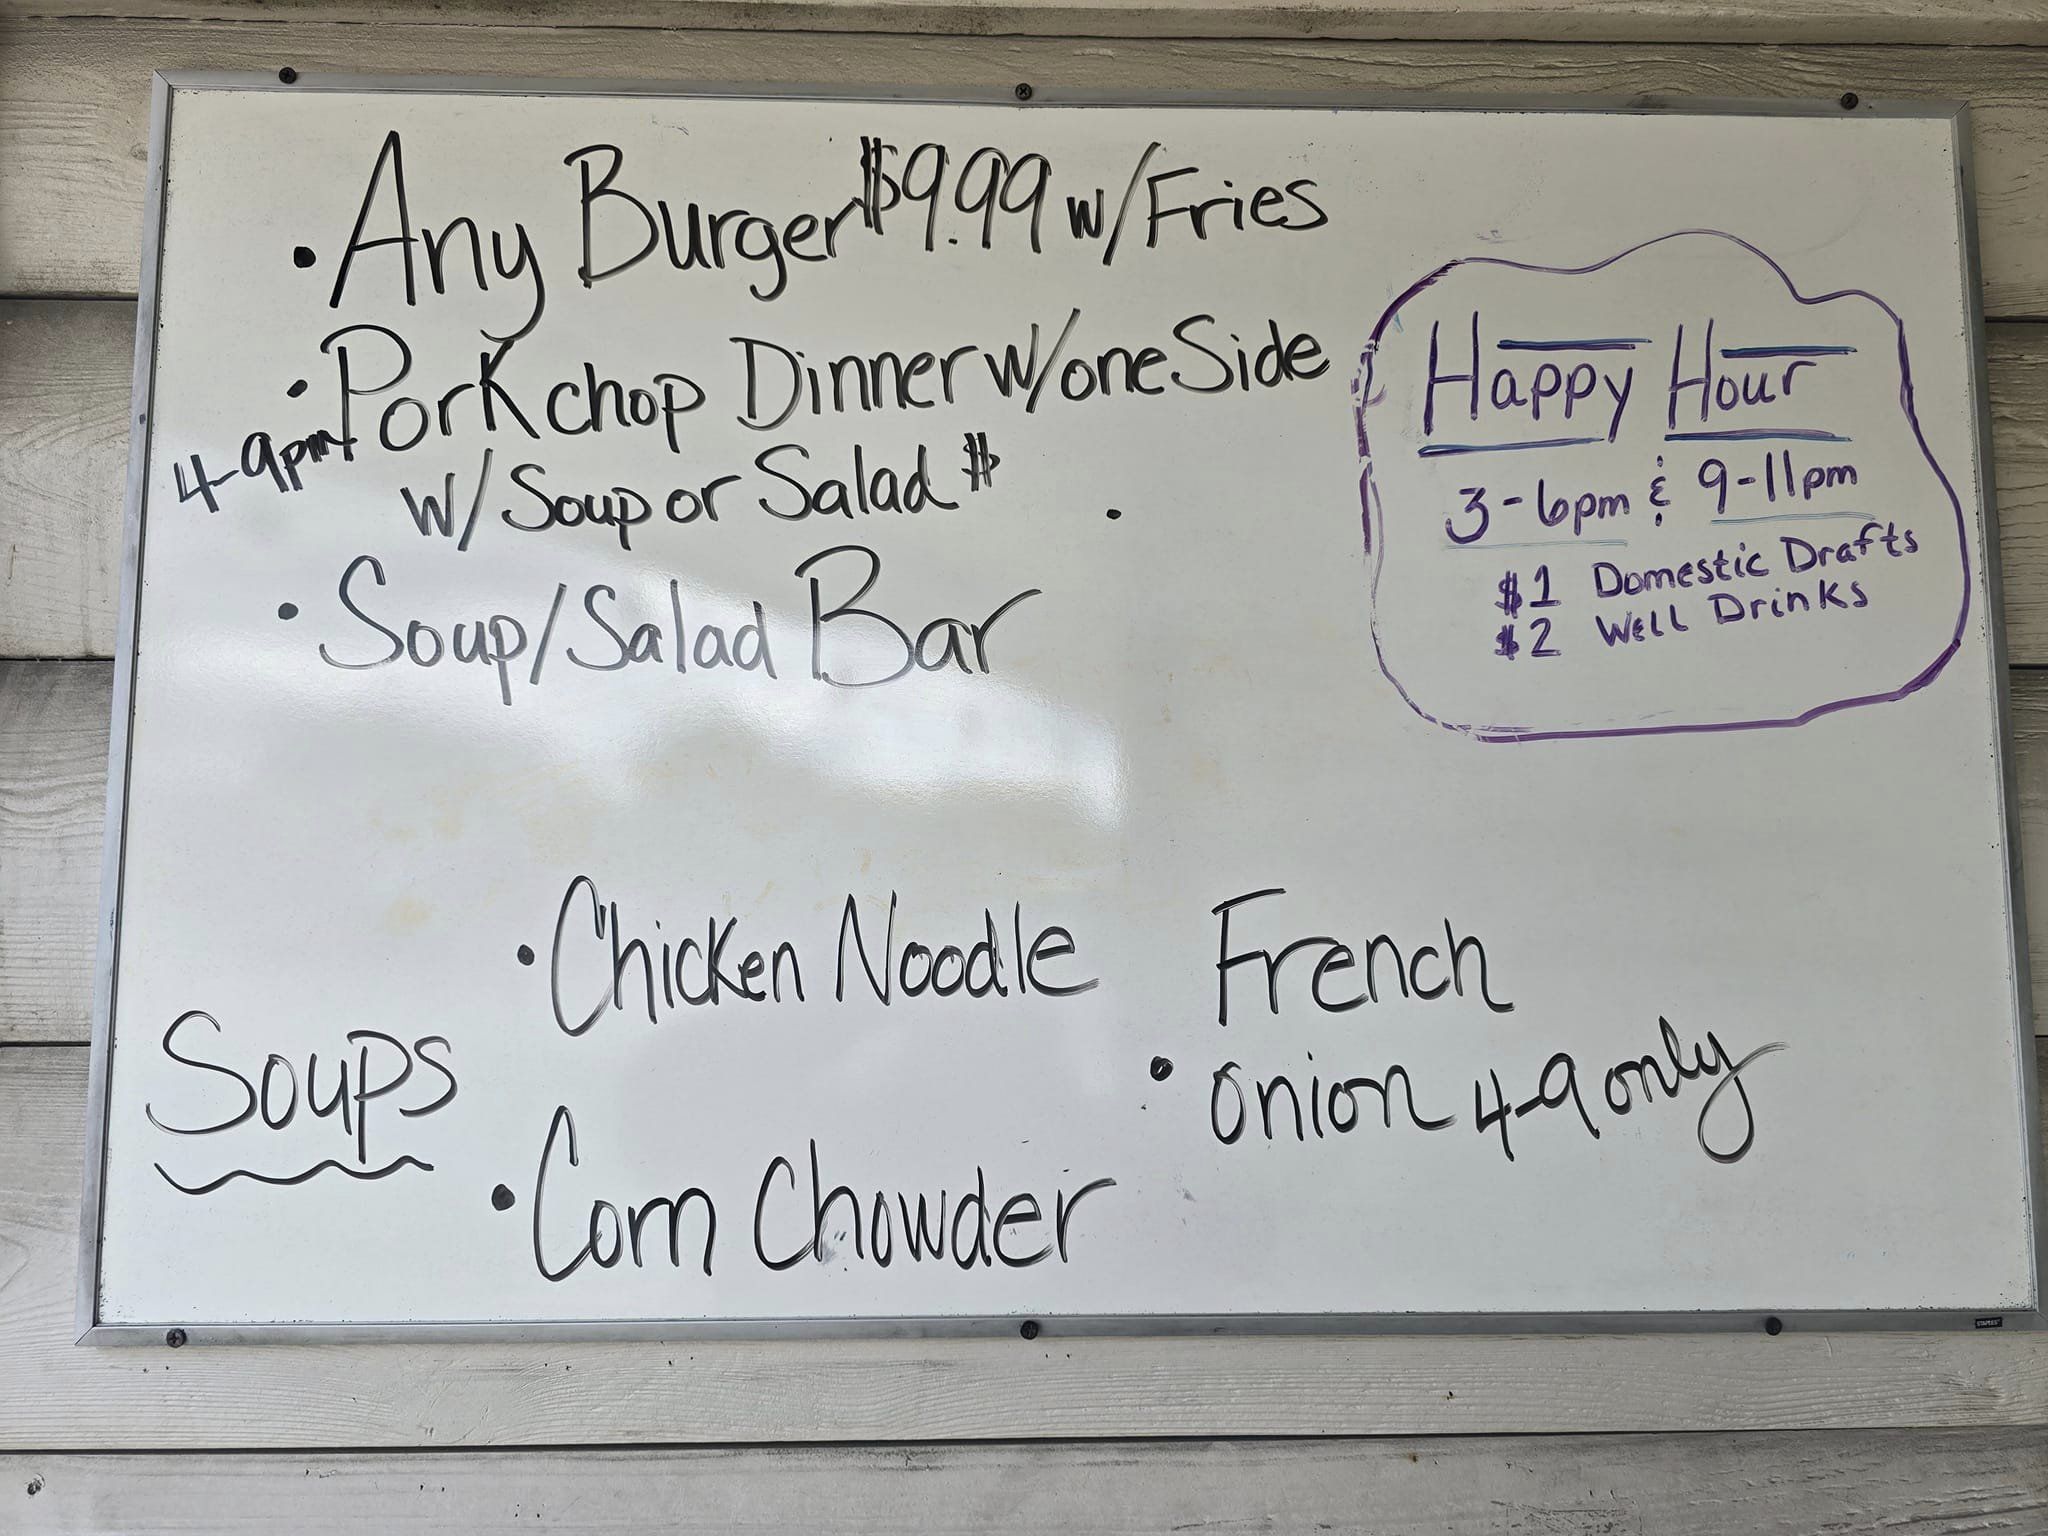 • Any Burger $9.99 w/Fries
• Porkchop Dinner w/one Side
4-9pm
w/ Soup or Salad $
• Soup/Salad Bar
Happy Hour
3-6pm & 9-11pm
$1 Domestic Drafts
$2 Well Drinks
Soups
• Chicken Noodle
• Corn Chowder
French
• onion 4-9 only
STAPLES